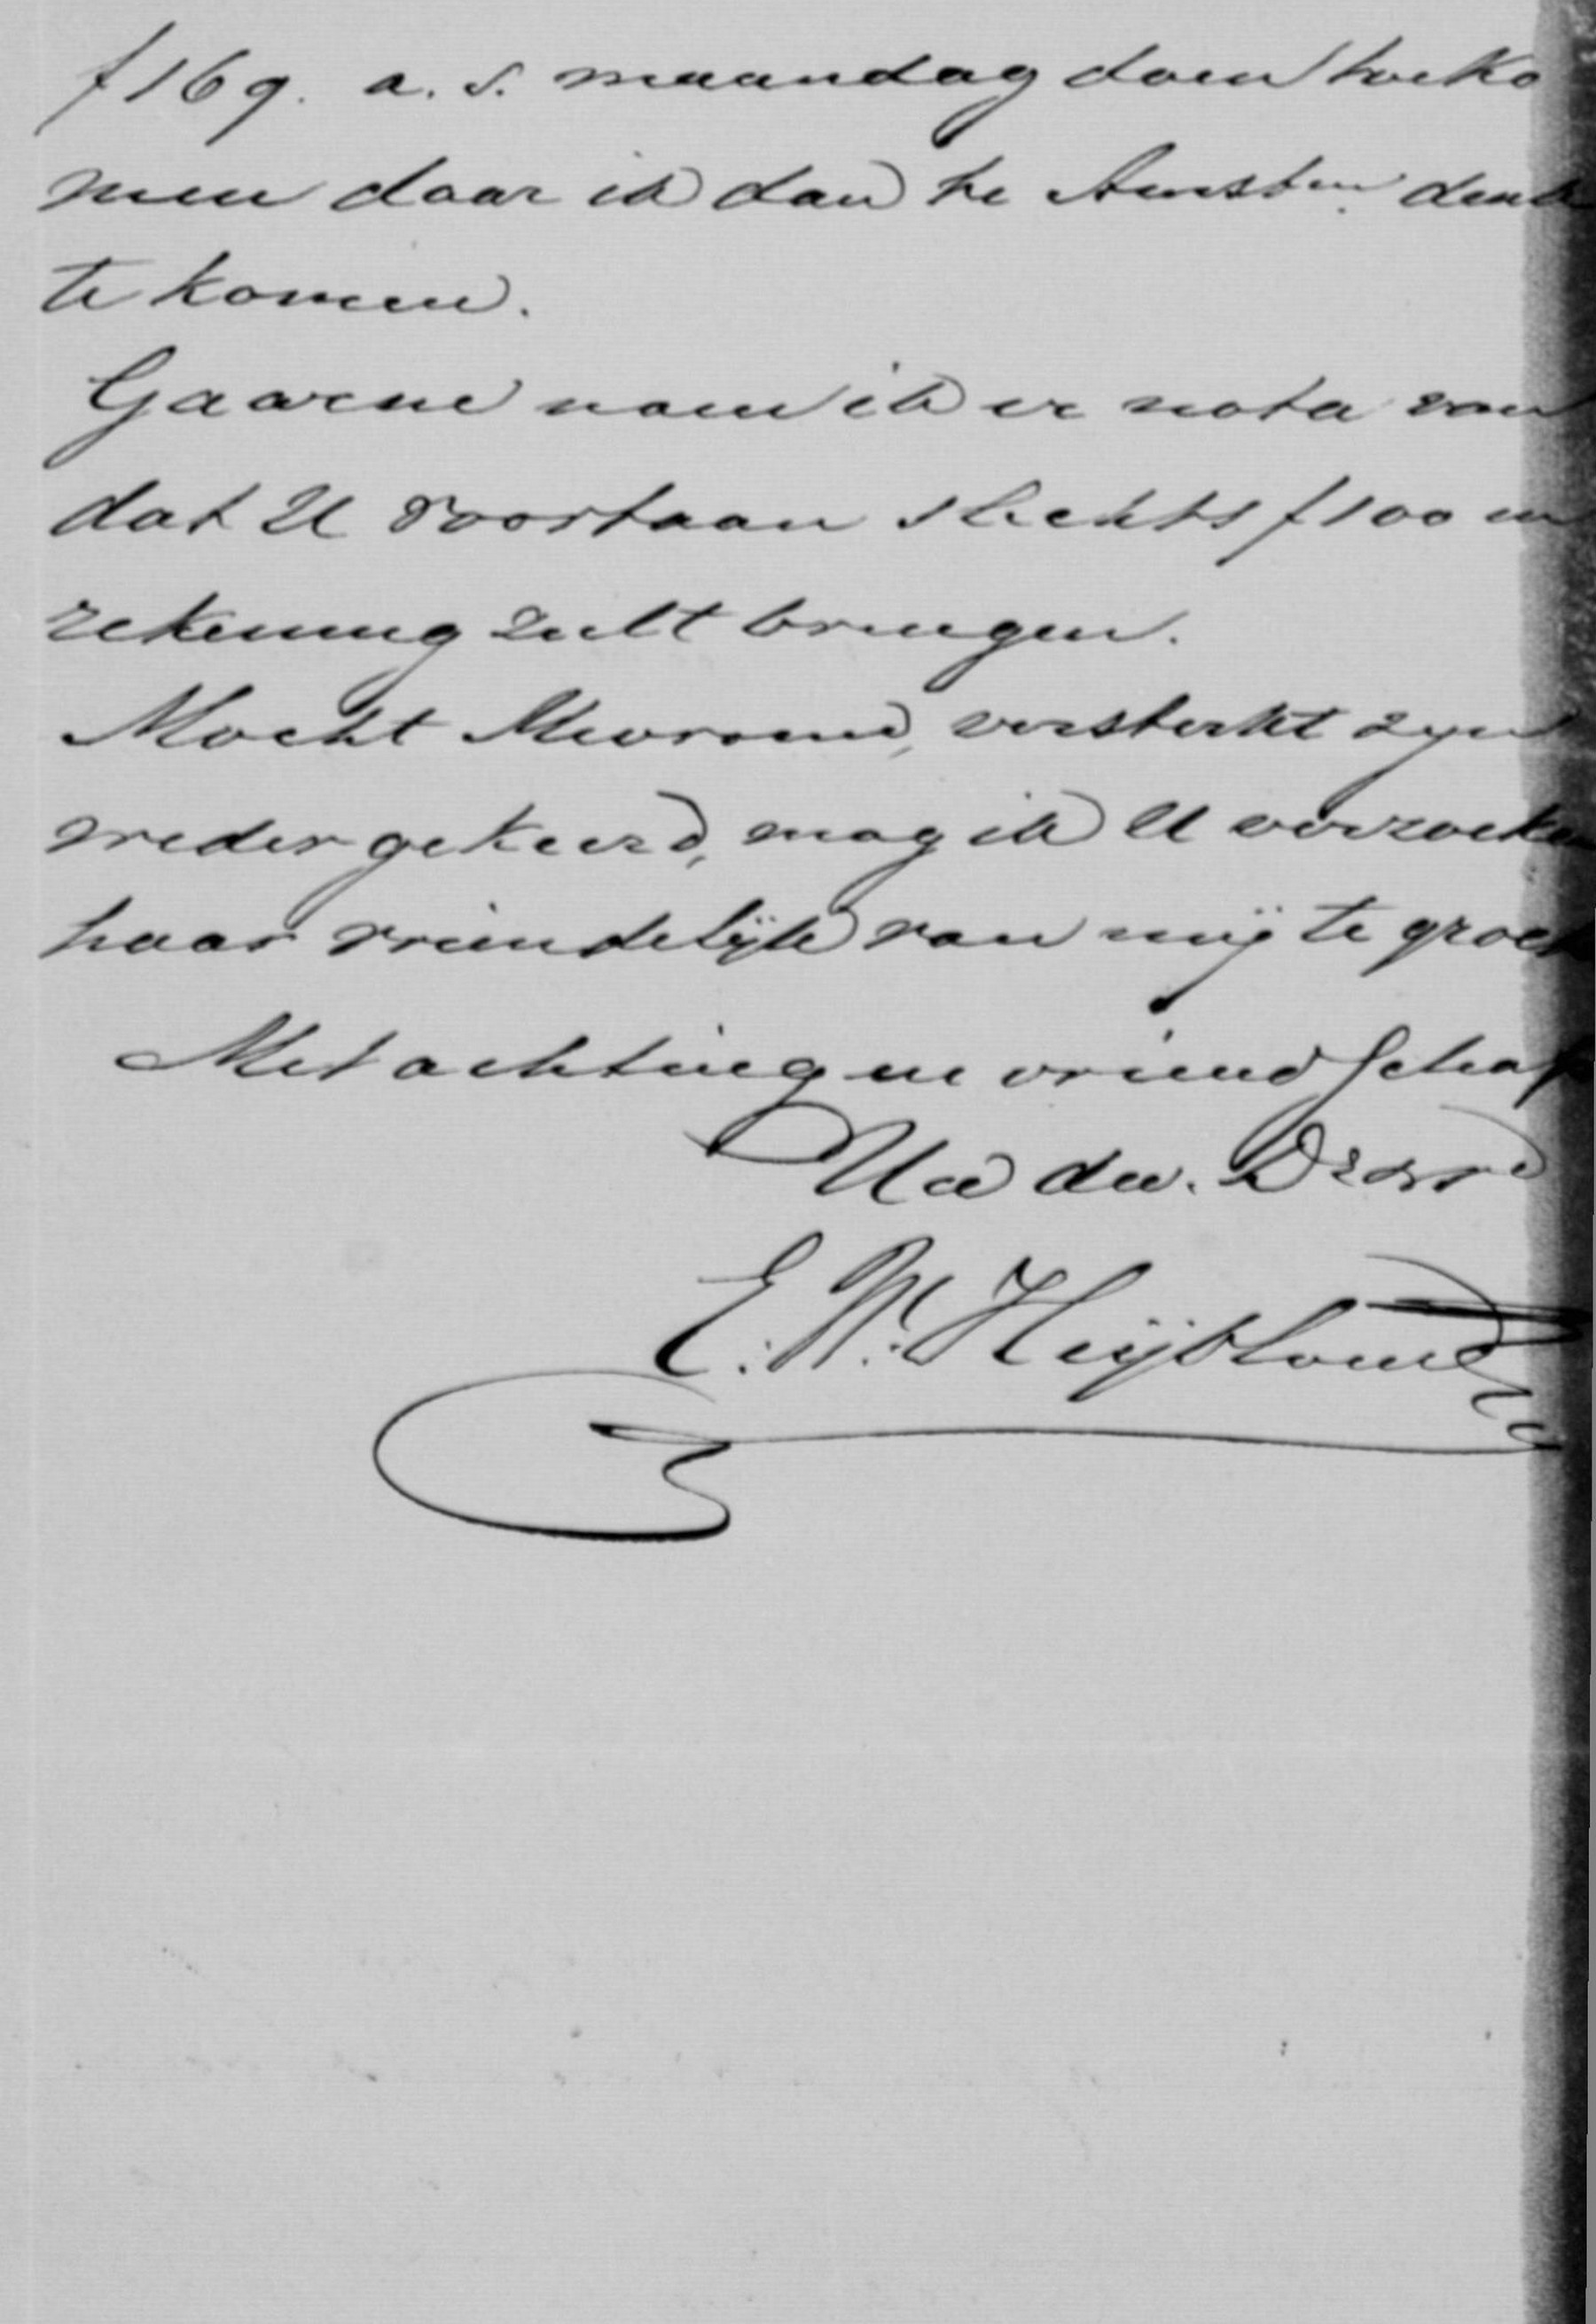 f 169. a. s. maandag doen toeko
men daar ik dan te Amstm denk
te komen.
Gaarne nam ik er nota van
dat U voortaan slechts f 100 in
rekening zult brengen.
Mocht Mevrouw, versterkt zyn
wedergekeerd, mag ik U verzoeken
haar vriendelijk van mij te groet
Met achting en vriendschap
UEd dw. Dr
E. W. Heijblom